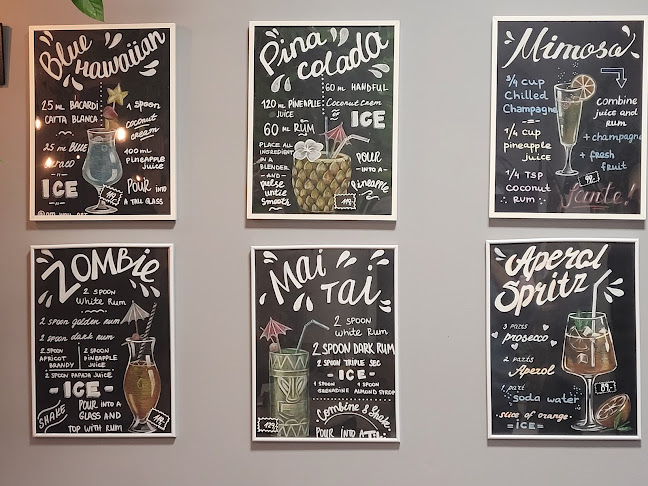 Blue
Hawaiian
25 ML BACARDI
CATTA BLANCA
25 ML BLUE
ICE
1 SPOON
coconut
cream
100 ML
PINEAPPLE
JUICE
POUR INTO
A TALL GLASS
Pina
colada
120 ML PINEAPLE
JUICE
60 ML RUM
PLACE ALL
INGREDIENT
IN A
BLENDER
- AND -
pulse
until
smooth
60 ML HANDFUL
Coconut Cream
OF ICE
POUR
- INTO A -
Pineapple
119,-
Mimosa
3/4 CUP
Chilled
Champagne
1/4 CUP
pineapple
juice
1/4 TSP
coconut
RUM
combine
juice and
rum
+ champagne
+ fresh
fruit
Sante!
ZOMBIE
2 SPOON
White Rum
2 SPOON golden rum
2 SPOON dark rum
2 SPOON
APRICOT
BRANDY
2 SPOON
PINEAPPLE
JUICE
2 SPOON PAPAJA JUICE
- ICE -
SHAKE
POUR INTO A
GLASS AND
TOP WITH RUM
Mai
Tai
2 SPOON
White Rum
2 SPOON DARK RUM
2 SPOON TRIPLE SEC
- ICE -
1 SPOON
GRENADINE
1 SPOON
ALMOND SYROP
Combine & Shake
POUR INTO A Tiki
129,-
Aperol
Spritz
3 parts
prosecco
2 parts
Aperol
1 part
soda water
slice of orange
= ICE =
89,-